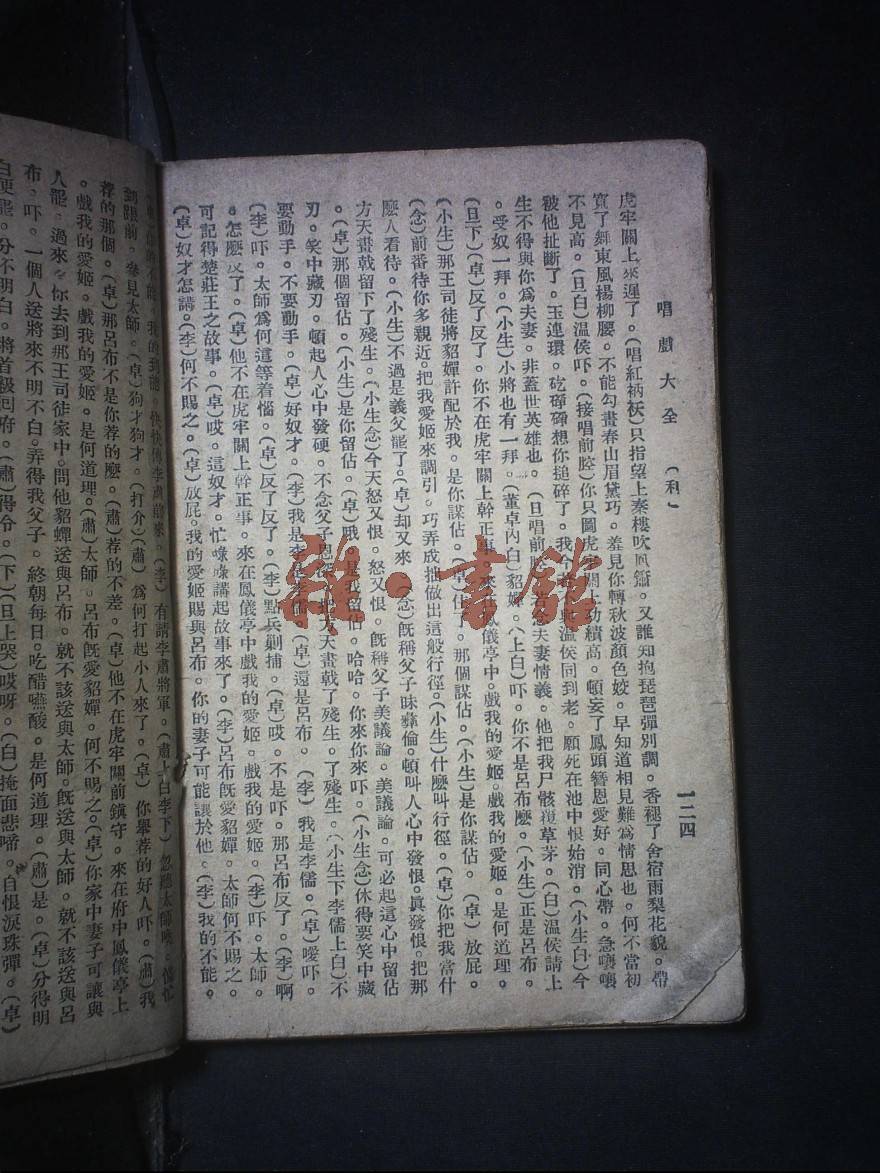 唱戲大全
(利)
一二四
虎牢關上來遲了。(唱紅衲襖)只指望上秦樓吹鳳簫。又誰知抱琵琶彈別調。香褪了舍宿雨梨花貌。帶
寬了舞東風楊柳腰。不能勾畫春山眉黛巧。羞見你轉秋波顏色姣。早知道相見難爲情思也。何不當初
不見高。(旦白)溫侯吓。(接唱前腔)你只圖虎牢關上功績高。頓妄了鳳頭簪恩愛好。同心帶。急嚷嚷
被他扯斷了。玉連環。矻磾磾想你搥碎了。我今 與溫侯同到老。願死在池中恨始消。(小生白)今
生不得與你爲夫妻。非蓋世英雄也。(旦唱前腔) 念夫妻情義。他把我尸骸覆草茅。(白)溫侯請上
。受奴一拜。(小生)小將也有一拜。(董卓內白)貂嬋。(上白)吓。你不是呂布麽。(小生)正是呂布。
(旦下)(卓)反了反了。你不在虎牢關上幹正事。來 鳳儀亭中。戲我的愛姬。戲我的愛姬。是何道理。
(小生)那王司徒將貂嬋許配於我。是你謀佔。(卓) 那個謀佔。(小生)是你謀佔。(卓)放屁。
(念)前番待你多親近。把我愛姬來調引。巧弄成拙做出這般行徑。(小生)什麽叫行徑。(卓)你把我當什
麽人看待。(小生)不過是義父罷了。(卓)却又來。(念)旣稱父子昧彝倫。頓叫人心中發恨。眞發恨。把那
方天畫戟留下了殘生。(小生念)今天怒又恨。怒又恨。旣稱父子美議論。美議論。可必起這心中留佔
。(卓)那個留佔。(小生)是你留佔。(卓)哦。是我留佔。哈哈。你來你來吓。(小生念)休得要笑中藏
刃。笑中藏刃。頓起人心中發硬。不念父子恩 把方天畫戟了殘生。了殘生。(小生下李儒上白)不
要動手。不要動手。(卓)好奴才。(李)我是李 是李儒。(卓)還是呂布。(李)我是李儒。(卓)噯吓。
(李)吓。太師爲何這等着惱。(卓)反了反了。(李)點兵剿捕。(卓)哎。不是吓。那呂布反了。(李)啊
。怎麽反了。(卓)他不在虎牢關上幹正事。來在鳳儀亭中戲我的愛姬。戲我的愛姬。(李)吓。太師。
可記得楚莊王之故事。(卓)哎。這奴才。忙 講起故事來了。(李)呂布旣愛貂嬋。太師何不賜之。
(卓)奴才怎講。(李)何不賜之。(卓)放屁。我的愛姬賜與呂布。你的妻子可能讓於他。(李)我的不能。
的不能。我的到能。快快傳李肅前來。(李)有請李肅將軍。(肅上白李下)忽聽太師喚。慌忙
到跟前。參見太師。(卓)狗才狗才。(打介)(肅)爲何打起小人來了。(卓)你舉荐的好人吓。(肅)我
荐的那個。(卓)那呂布不是你荐的麽。(肅)荐的不差。(卓)他不在虎牢關前鎮守。來在府中鳳儀亭上
。戲我的愛姬。戲我的愛姬。是何道理。(肅)太師。呂布旣愛貂嬋。何不賜之。(卓)你家中妻子可讓與
人罷。過來。你去到那王司徒家中。問他貂蟬送與呂布。就不該送與太師。旣送與太師。就不該送與呂
布。吓。一個人送將來不明不白。弄得我父子。終朝每日。吃醋嚥酸。是何道理。(肅)是。(卓)分得明
白便罷。分不明白。將首級回府。(肅)得令。(下)(旦上哭)哎呀。(白)掩面悲啼。自恨淚珠彈。(卓)
雜·書館